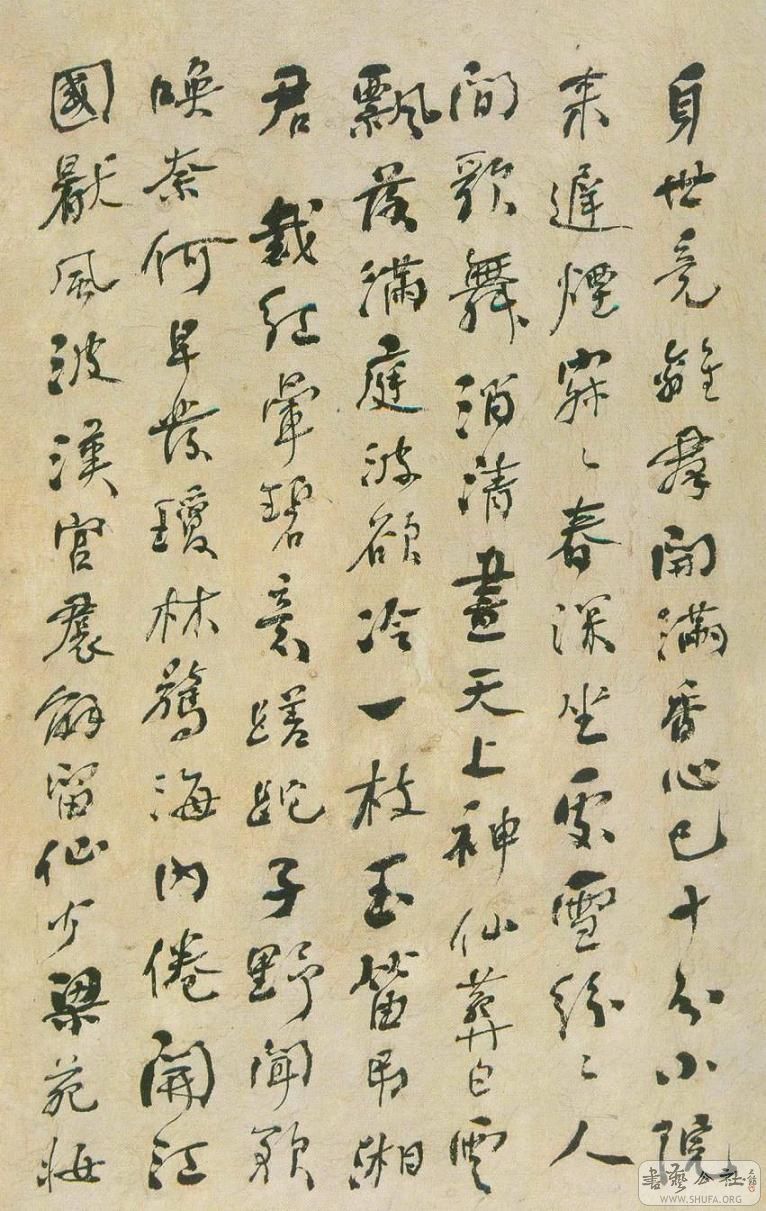 身世竟離羣開滿香心已十分小院
來遲煙寂〻春深坐處雪紛〻人
間歌舞消清晝天上神仙葬白雲
飄落滿庭波欲冷一枝玉笛弔湘
君 裁紅暈碧意蹉跎子野聞歌
喚奈何早發瓊林驚海內倦開江
國厭風波漢宮裠解留仙少梁苑妝
書藝公社
WWW.SHUFA.ORG